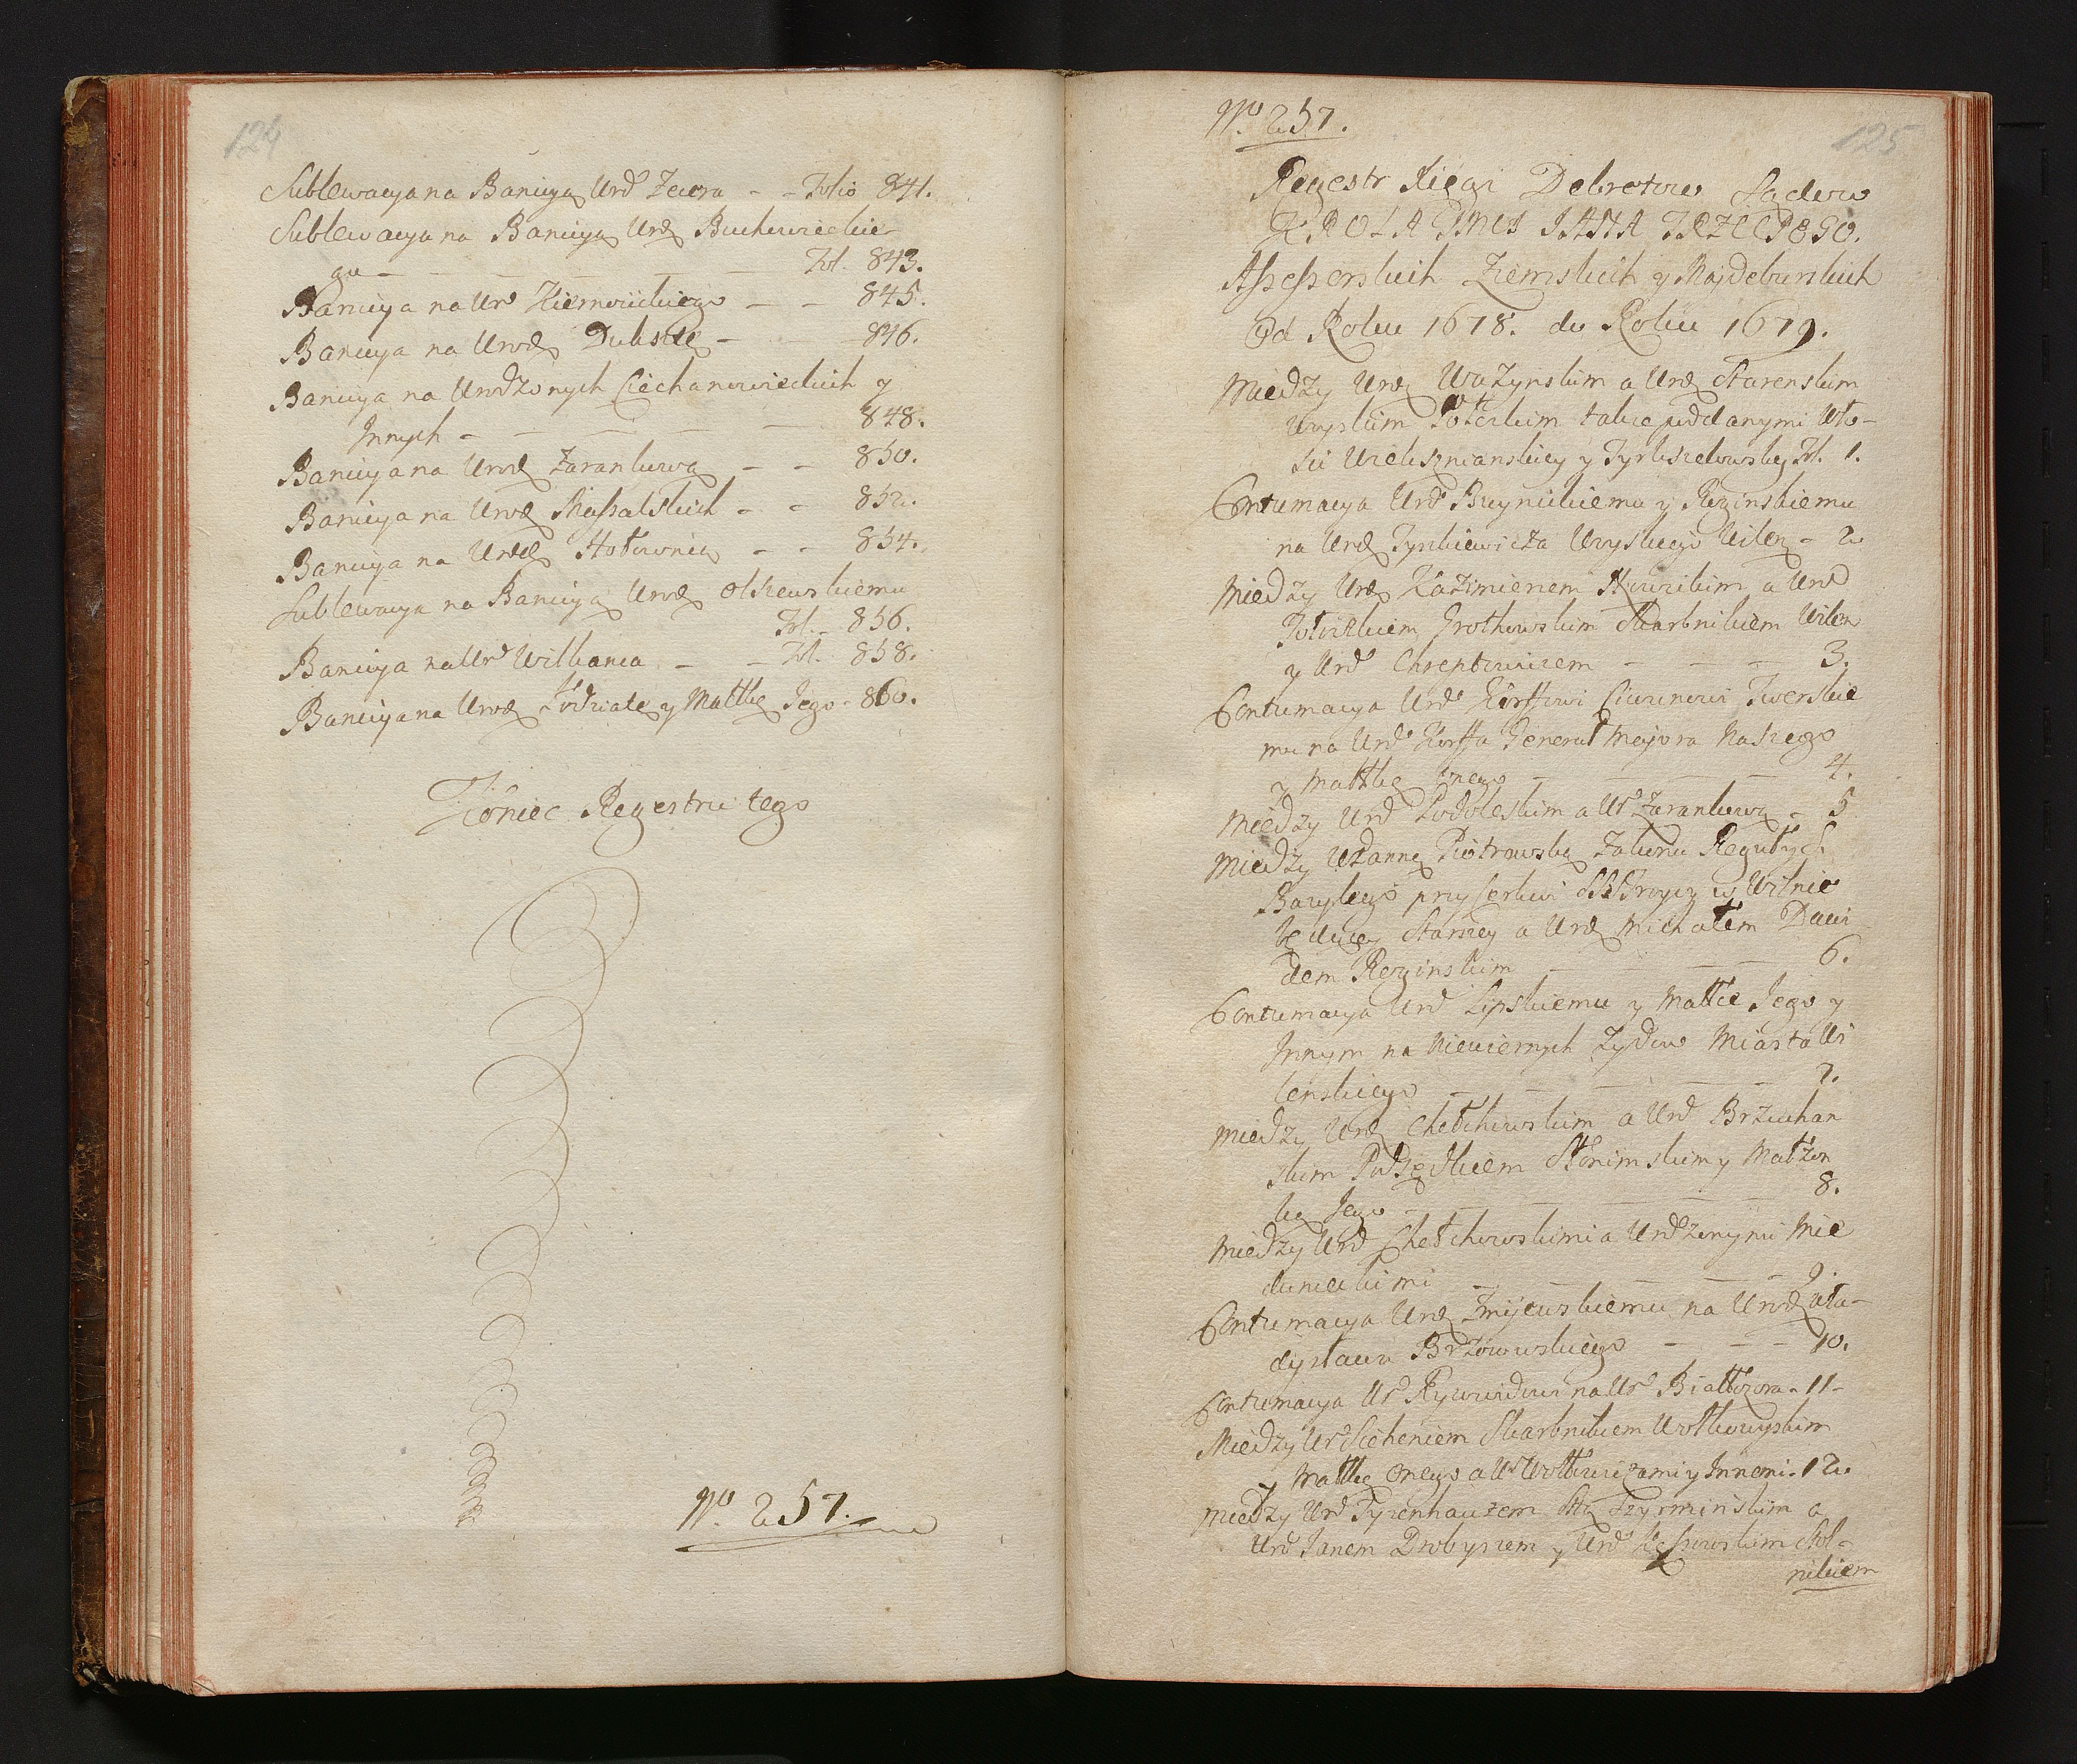 124
Sublewacya na Banicyą Urd Zewra - - Folio 841.
Sublewacya na Banicyą Urd Buchowieckie-
go - - - - - - Fol. 843.
Banicya na Ur Kiernowickiego - - 845.
Banicya na Urod Dubskę - - 846.
Banicya na Urodzonych Ciechanowieckich y
Innych - - - - - 848.
Banicya na Urod Zarankową - - 850.
Banicya na Urod Massalskich - - 852.
Banicya na Urod Hołownią - - 854.
Sublewacya na Banicyą Urod Olszewskiemu
Fol. - 856.
Banicya na Ur Witkanca - - Fol. 858.
Banicya na Urod Łodziatę y Małkę Jego - 860.
Koniec Regestru tego
No. 257.
No. 257.
125
Regestr Xięgi Dekretow Sądow
KROLA JMCI JANA TRZECIEGO.
Assessorskich Ziemskich y Majdeburskich
Od Roku 1678. do Roku 1679.
Między Urd Ważynskim a Urd Starenskim
Uryskim także poddanymi Wło-
ści Wielisznianskiey y Fol. 1.
Contumacya Urd Bueynickiemu y Rezinskiemu
na Urd Tyszkiewicza - 2
Między Urd Kazimierzem a Urd
Grothowskim Skarbnikiem Wilen
y Urd Chreptowiczem - - - 3.
Contumacya Urd Korffowi Ciwunowi Twerskie
mu na Urd Korffa Generał Majora Naszego
y Małkę onego - - - - 4.
Między Urd Podoleskim a Ur Zarankową - 5
Między Uzanną Piotrowską Zakonu Reguły S.
Bazylego przy Cerkwi SSS Troycy w Wilnie
będącey Starszey a Urd Michałem Dawi
dem Rezinskim - - - - 6.
Contumacya Urd Lipskiemu y Małce Jego y
Innym na Niewiernych Zydow Miasta Wi
lenskiego - - - - - 7.
Między Urd Chełchowskim a Urd Brzuchan
skim Podsędkiem Słonimskim y Małżon
ką Jego - - - - - 8.
Między Urd Chełchowskimi a Urdzonymi Mie
dunieckimi - - - - 9.
Contumacya Urd Zmijewskiemu na Urod Wła-
dysława Brzozowskiego - - - 10.
Contumacya Ur Rywwidowi na Ur Białłozora - 11 -
Między Ur Sieheniem Skarbnikiem Wołkowyskim
y Małkę Onego a Ur Wołkowiczami y Innemi. 12.
Między Urd Tyzenhauzem Stą Szyrminskim a
Urd Janem Drobyszem y Urd Lessowskim Stol-
nikiem